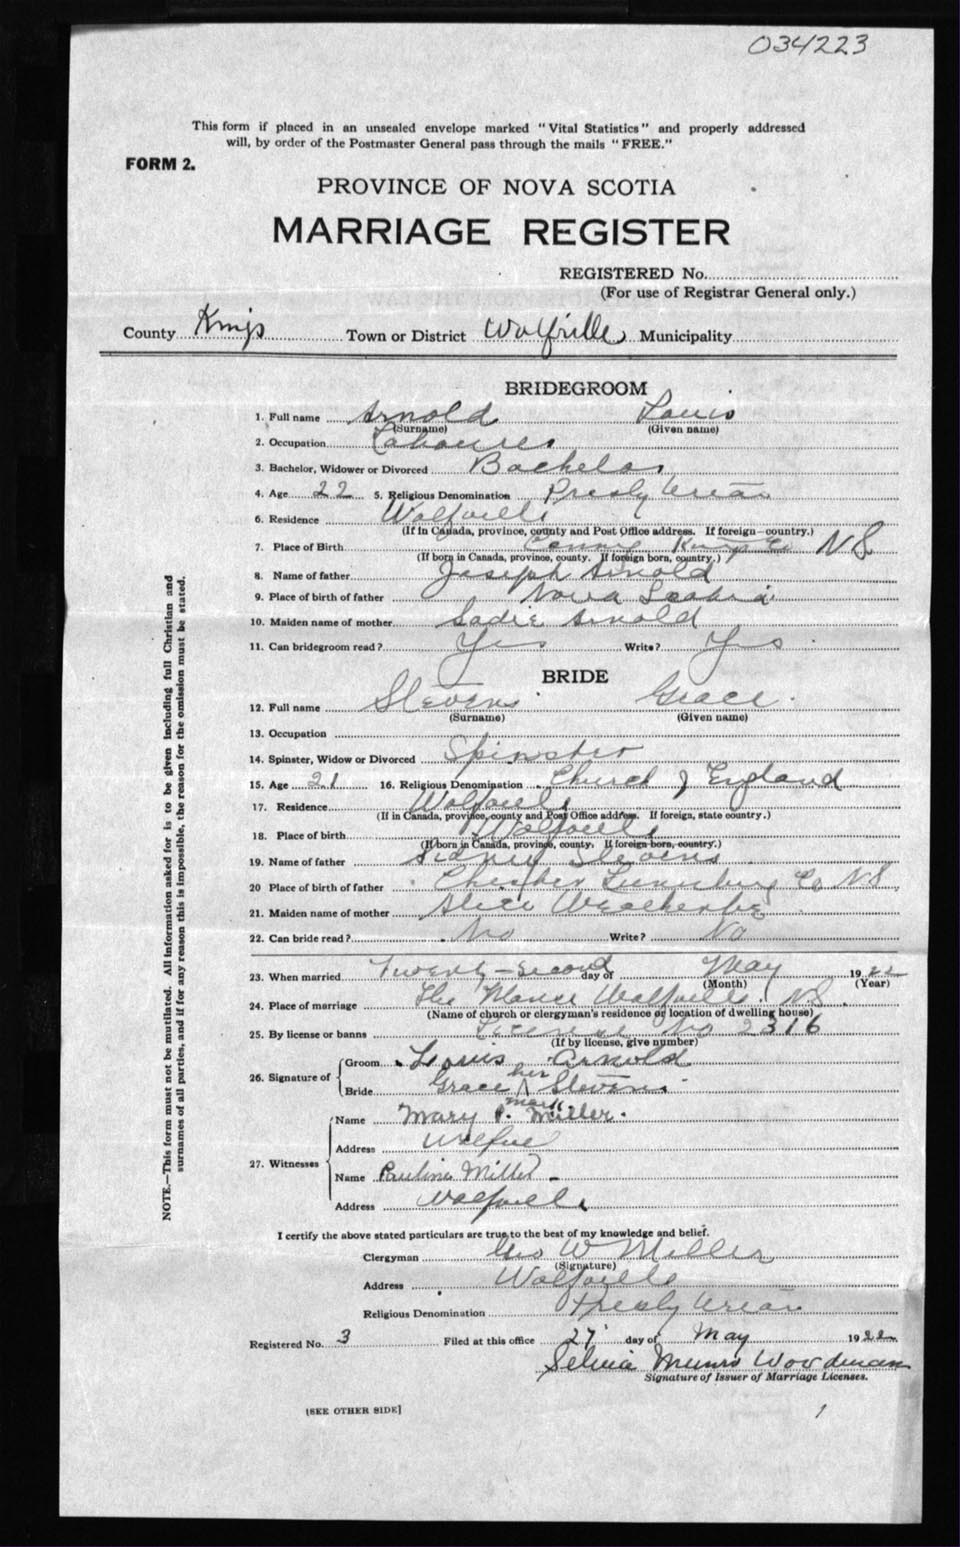 034223
This form if placed in an unsealed envelope marked "Vital Statistics" and properly addressed
will, by order of the Postmaster General pass through the mails "FREE."
FORM 2.
PROVINCE OF NOVA SCOTIA
MARRIAGE REGISTER
REGISTERED No.
(For use of Registrar General only.)
County Kings Town or District Wolfville Municipality
BRIDEGROOM
1. Full name Arnold Louis
(Surname) (Given name)
2. Occupation
3. Bachelor, Widower or Divorced Bachelor
4. Age 22 5. Religious Denomination Presbyterian
6. Residence Wolfville
(If in Canada, province, county and Post Office address. If foreign—country.)
7. Place of Birth Kings Co NS
(If born in Canada, province, county. If foreign born, country.)
8. Name of father Joseph Arnold
9. Place of birth of father Nova Scotia
10. Maiden name of mother Sadie Arnold
11. Can bridegroom read? Yes Write? Yes
BRIDE
12. Full name Stevens Grace
(Surname) (Given name)
13. Occupation
14. Spinster, Widow or Divorced Spinster
15. Age 21 16. Religious Denomination Church of England
17. Residence Wolfville
(If in Canada, province, county and Post Office address. If foreign, state country.)
18. Place of birth Wolfville
(If born in Canada, province, county. If foreign-born, country.)
19. Name of father Sidney Stevens
20 Place of birth of father Chester Lunenburg Co N.S.
21. Maiden name of mother Alice
22. Can bride read? No Write? No
23. When married Twenty-Second day of May 1922
(Month) (Year)
24. Place of marriage The Manse Wolfville N.S.
(Name of church or clergyman's residence or location of dwelling house)
25. By license or banns License No 2316
(If by license, give number)
26. Signature of Groom Louis Arnold
Bride Grace her X mark Stevens
27. Witnesses Name Mary P. Miller
Address Wolfville
Name Pauline Miller
Address Wolfville
I certify the above stated particulars are true to the best of my knowledge and belief.
Clergyman Geo W Miller
(Signature)
Address Wolfville
Religious Denomination Presbyterian
Registered No. 3 Filed at this office 27 day of May 1922
Selvia Munro Woodman
Signature of Issuer of Marriage Licenses.
[SEE OTHER SIDE]
1
NOTE.—This form must not be mutilated. All information asked for is to be given including full Christian and
surnames of all parties, and if for any reason this is impossible, the reason for the omission must be stated.